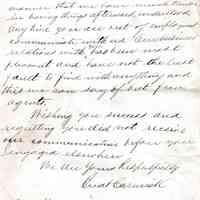 manner that we have much time
in having things afterward understood
any time you are out of employment
communicate with us. Our business
relations with you have been most
pleasant and have not the least
fault to find with anything and
this we can say of but few
agents.
Wishing you success and
regretting you did not receive
our communication before you
engaged elsewhere
We are Yours Respectfully